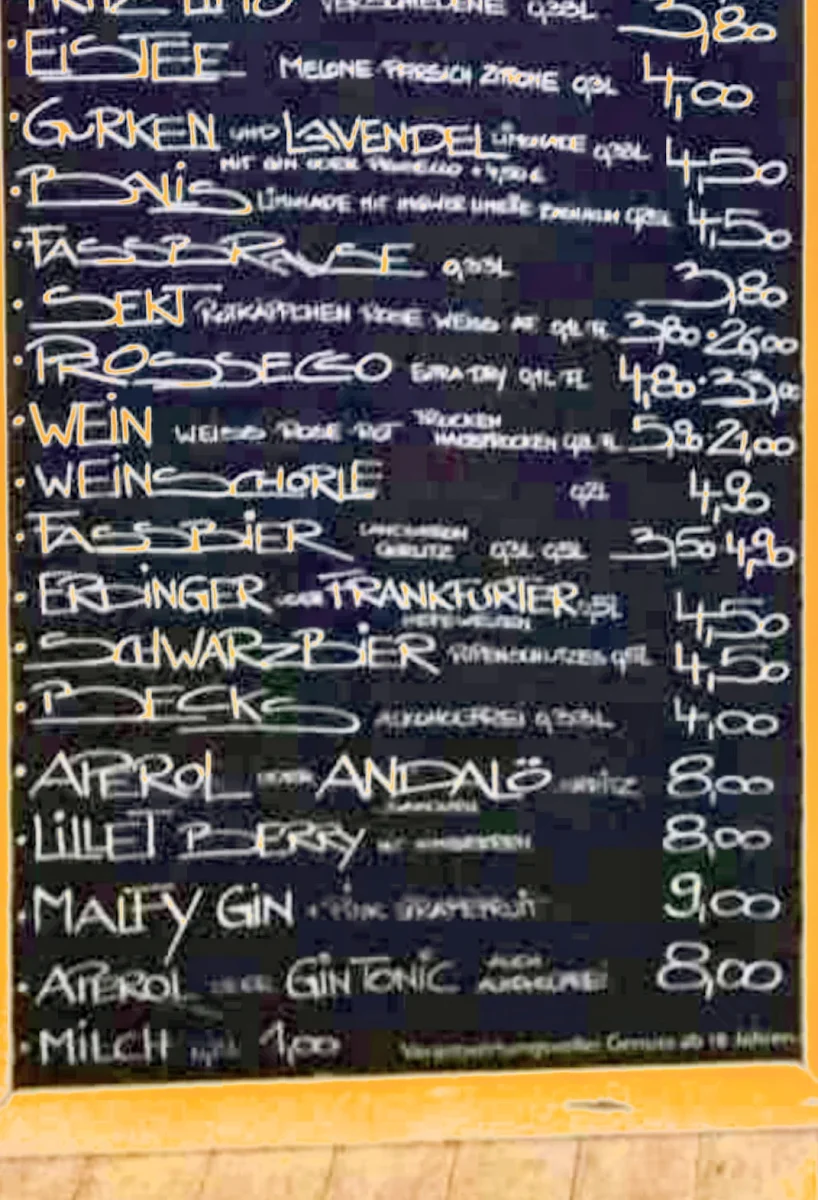 VERSCHIEDENE 0,33L 3,80
EISTEE MELONE PFIRSICH ZITRONE 0,3L 4,00
GURKEN UND LAVENDEL LIMONADE 0,33L 4,50
MIT GIN ODER PROSECCO + 4,50 €
LIMONADE MIT INGWER LIMETTE 4,50
FASSBRAUSE 0,33L 3,80
SEKT ROTKÄPPCHEN ROSE WEISS 0,1L FL 3,80 · 26,00
PROSSECCO EXTRA DRY 0,1L FL 4,80 · 33,00
WEIN WEISS ROSE ROT TROCKEN HALBTROCKEN 0,2L FL 5,90 21,00
WEINSCHORLE 0,2L 4,90
FASSBIER LANDSKRON GÖRLITZ 0,3L 0,5L 3,50 4,90
ERDINGER ODER FRANKFURTER 0,5L 4,50
HEFEWEIZEN
SCHWARZBIER 4,50
BECKS ALKOHOLFREI 0,333L 4,00
APEROL ODER ANDALÖ SPRITZ 8,00
SANDDORN
LILLET BERRY MIT 8,00
MALFY GIN + PINK GRAPEFRUIT 9,00
APEROL GIN TONIC AUCH ALKOHOLFREI 8,00
MILCH 1,00 Verantwortungsvoller Genuss ab 18 Jahren